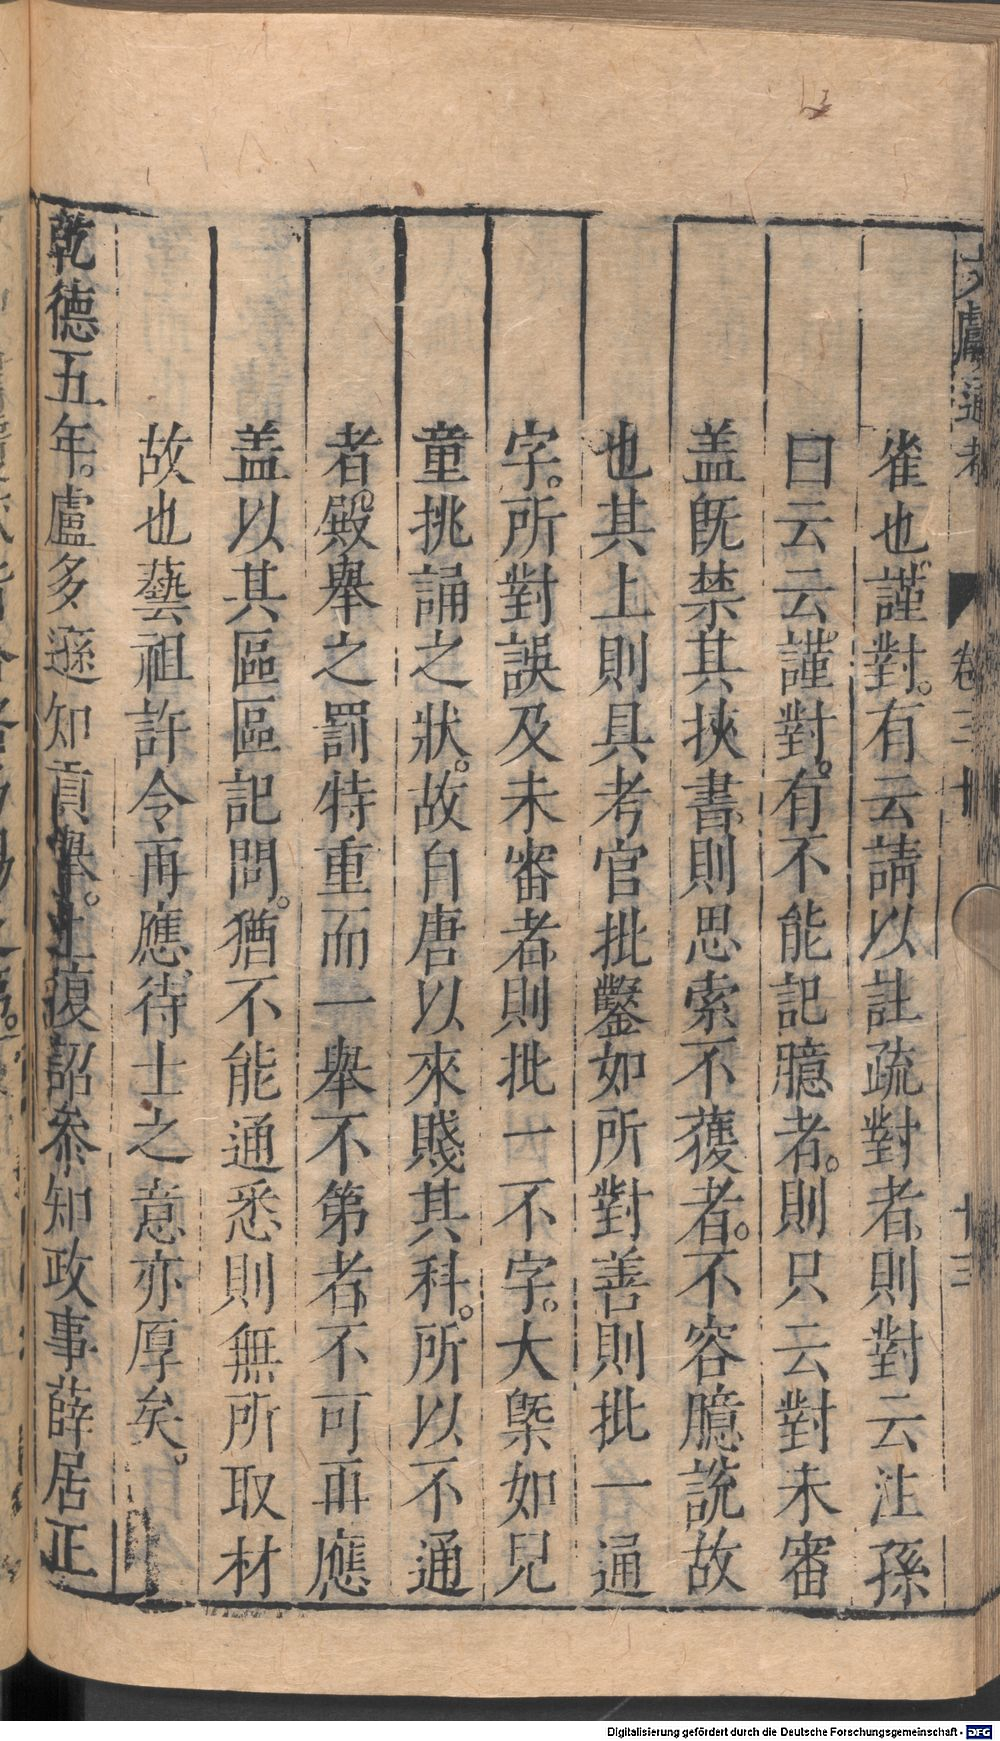 文獻通考 卷三十 十三
雀也謹對。有云請以註疏對者則對云註孫
曰云云謹對。有不能記臆者。則只云對未審
盖旣禁其挾書則思索不獲者。不容臆說故
也其上則具考官批鑿如所對善則批一通
字。所對誤及未審者則批一不字。大槩如兒
童挑誦之狀。故自唐以來賤其科。所以不通
者殿舉之罰特重而一舉不第者不可再應
盖以其區區記問。猶不能通悉則無所取材
故也藝祖許令再應待士之意亦厚矣。
乾德五年。盧多遜知貢舉。上復詔參知政事薛居正
Digitalisierung gefördert durch die Deutsche Forschungsgemeinschaft - DFG